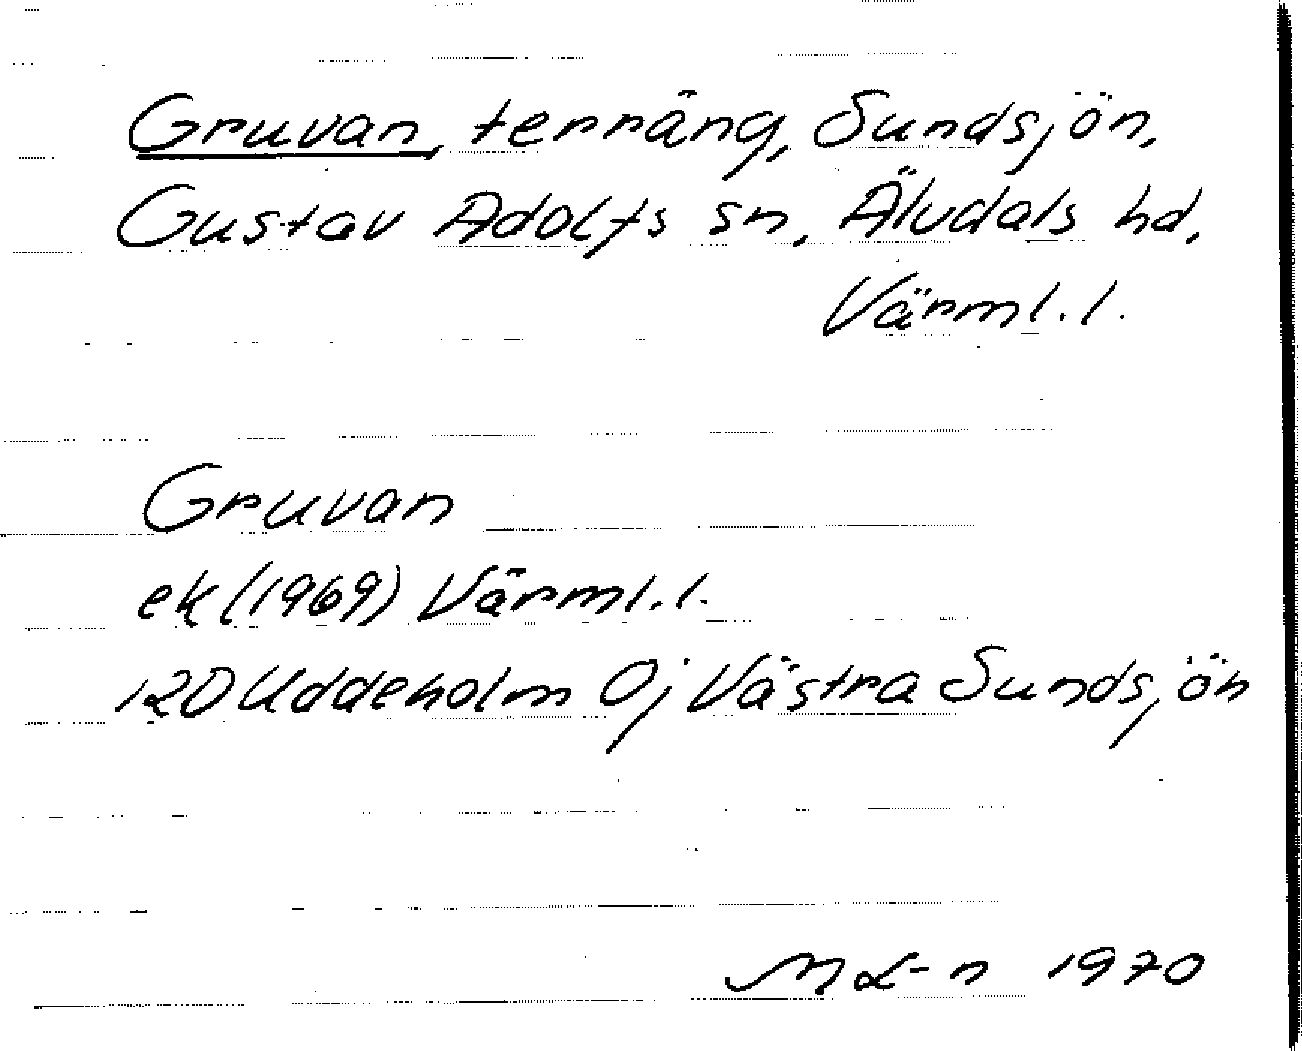 Gruvan, terräng, Sundsjön,
Gustav Adolfs sn, Älvdals hd,
Värml. l.
Gruvan
ek (1969) Värml. l.
12D Uddeholm 0j Västra Sundsjön
M L-n 1970